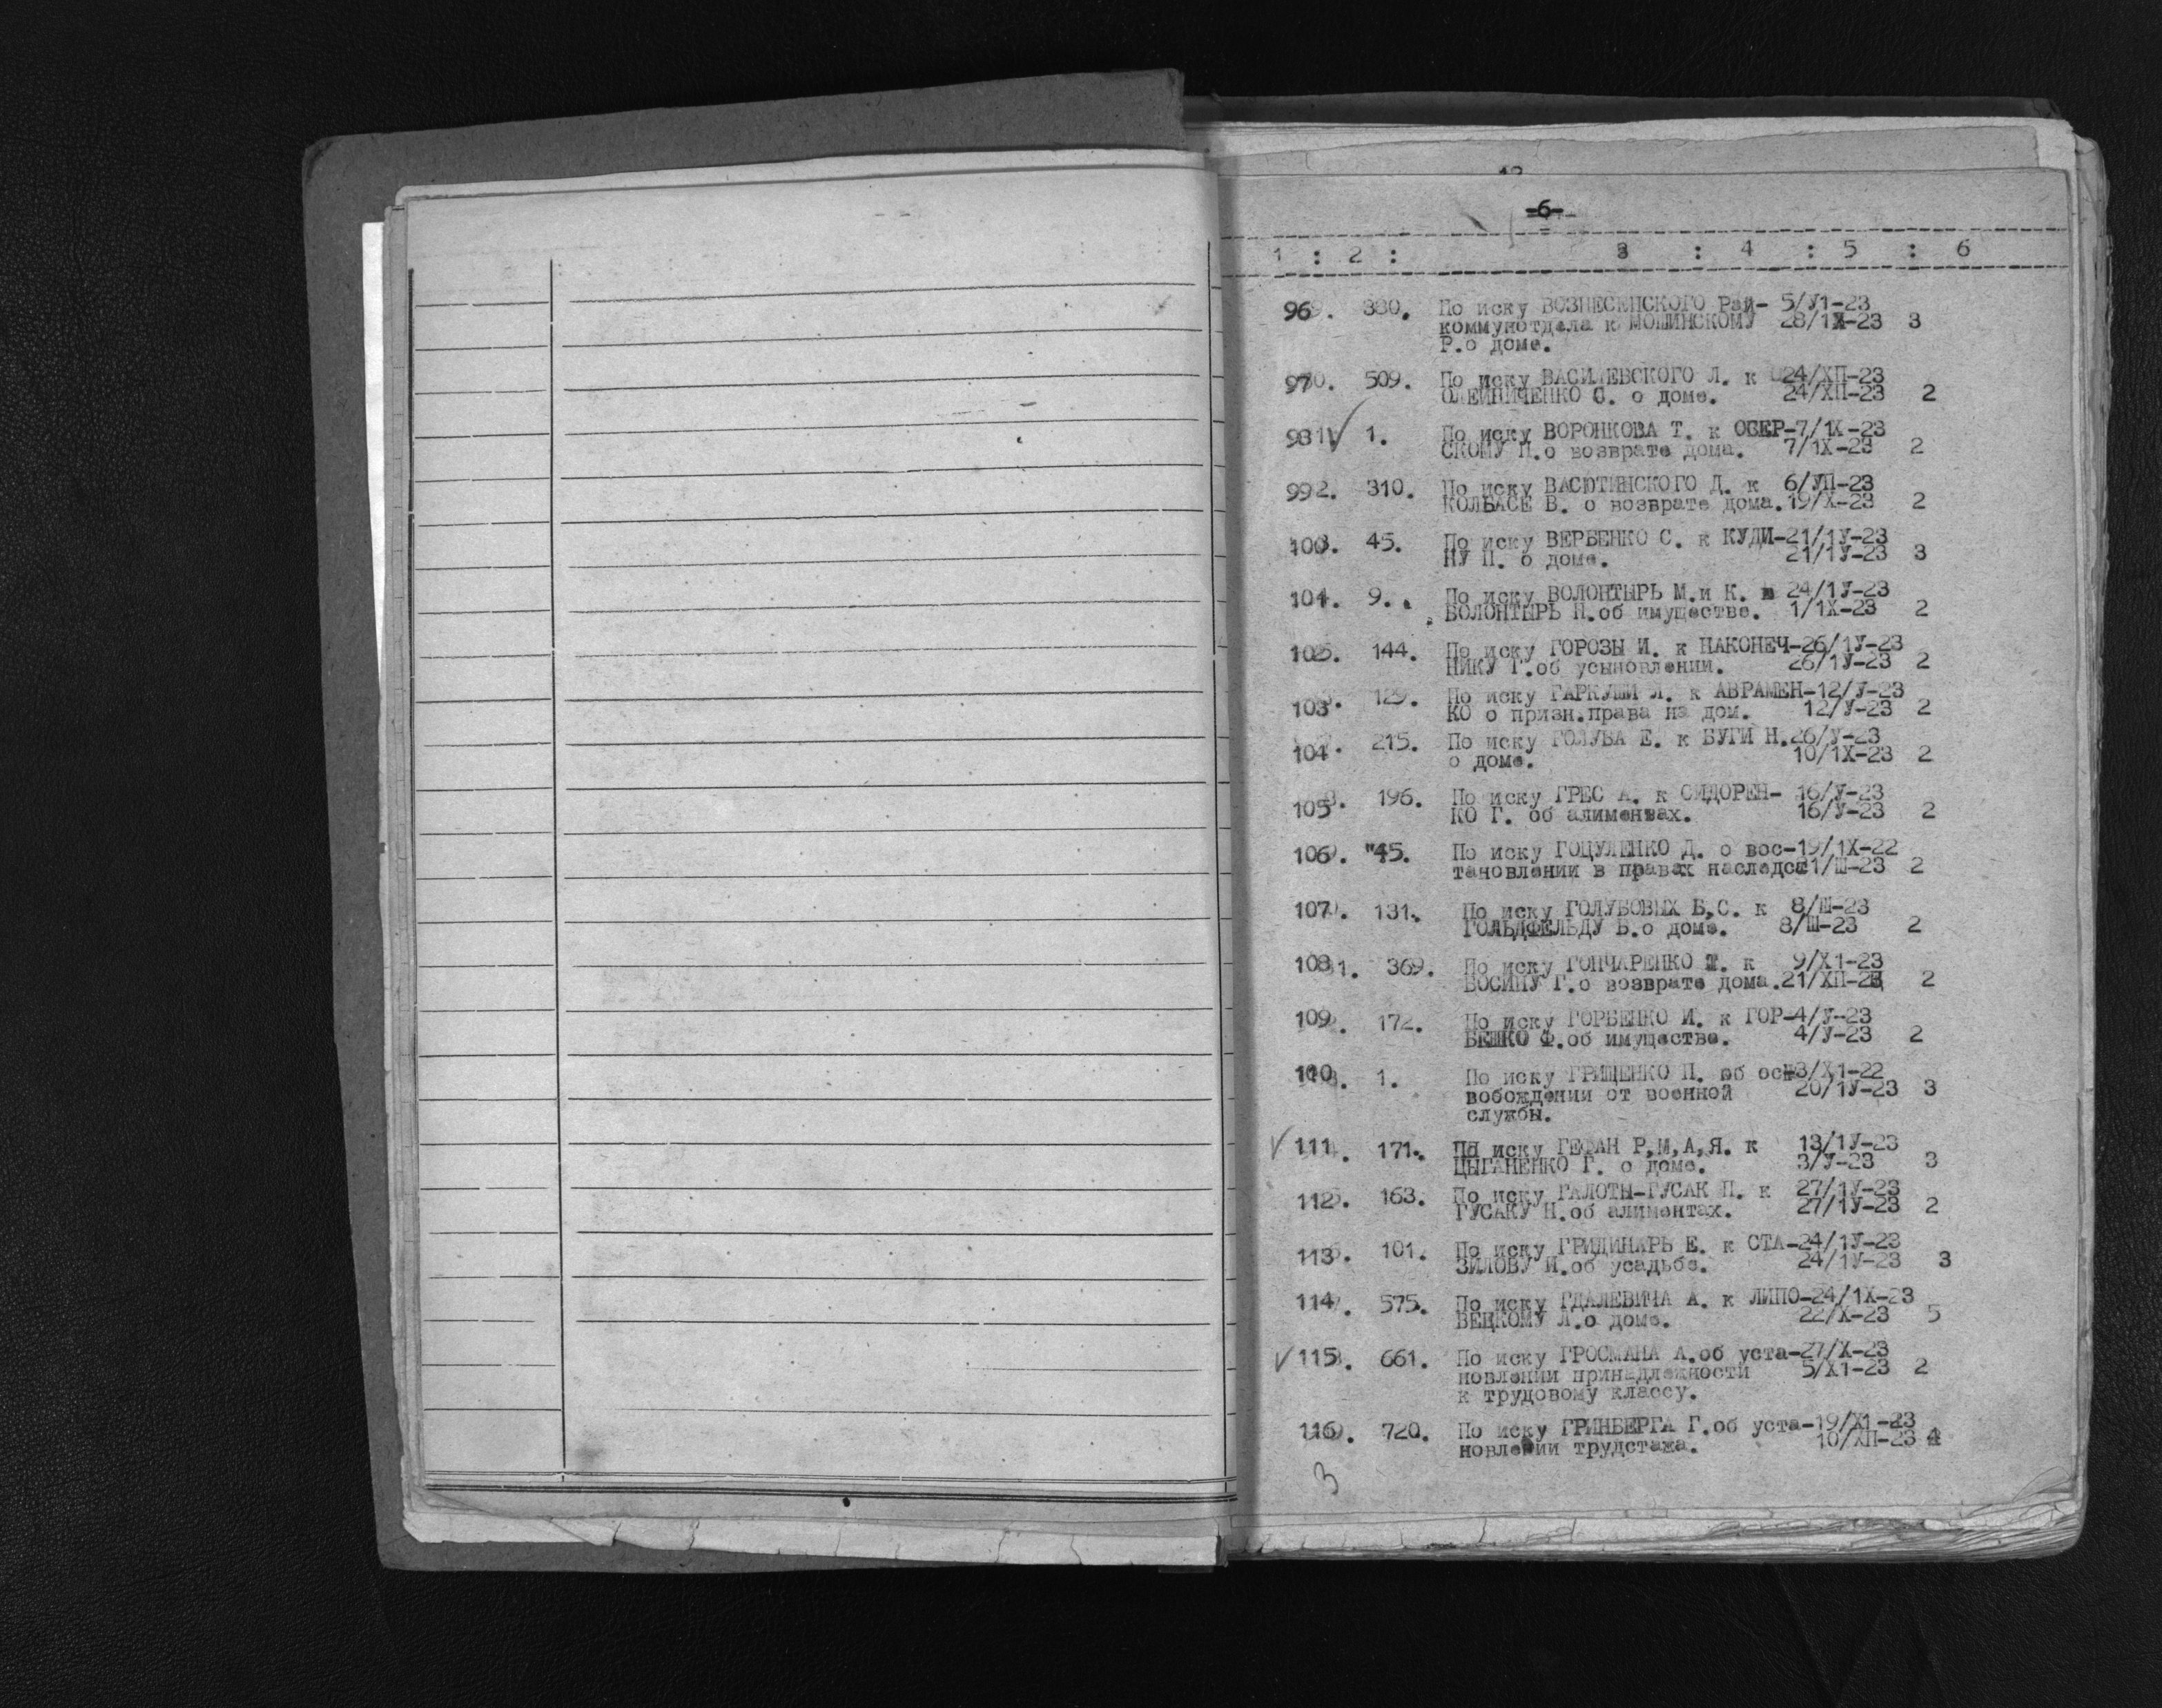 -6-
1 : 2 : 3 : 4 : 5 : 6
96. 380. По иску ВОЗНЕСЕНСКОГО Рай- 5/У1-23
коммунотдела к МОШИНСКОМУ 28/1X-23 3
Р.о доме.
97. 509. По иску ВАСИЛЕВСКОГО Л. к 24/ХП-23
ОЛЕЙНИЧЕНКО С. о доме. 24/ХП-23 2
98. 1. По иску ВОРОНКОВА Т. к ОЗЕР-7/1Х-23
СКОМУ Н.о возврате дома. 7/1Х-23 2
99. 310. По иску ВАСЮТИНСКОГО Д. к 6/УП-23
КОЛБАСЕ В. о возврате дома.19/Х-23 2
100. 45. По иску ВЕРБЕНКО С. к КУДИ-21/1У-23
НУ П. о доме. 21/1У-23 3
101. 9. По иску ВОЛОНТЫРЬ М.и К. к 24/1У-23
ВОЛОНТЫРЬ Н.об имуществе. 1/1Х-23 2
102. 144. По иску ГОРОЗЫ И. к НАКОНЕЧ-26/1У-23
НИКУ Г.об усыновлении. 26/1У-23 2
103. 129. По иску ГАРКУШИ Л. к АВРАМЕН-12/У-23
КО о призн.права на дом. 12/У-23 2
104. 215. По иску ГОЛУБА Е. к БУГИ Н.26/У-23
о доме. 10/1Х-23 2
105. 196. По иску ГРЕС А. к СИДОРЕН- 16/У-23
КО Г. об алиментах. 16/У-23 2
106. "45. По иску ГОЦУЛЕНКО Д. о вос-19/1Х-22
тановлении в правах наследс 1/Ш-23 2
107. 131. По иску ГОЛУБОВЫХ Б,С. к 8/Ш-23
ГОЛЬДФЕЛЬДУ Б.о доме. 8/Ш-23 2
108. 369. По иску ГОНЧАРЕНКО Т. к 9/Х1-23
БОСИНУ Г.о возврате дома.21/ХП-23 2
109. 172. По иску ГОРБЕНКО И. к ГОР-4/У-23
БЕНКО Ф.об имуществе. 4/У-23 2
110. 1. По иску ГРИЩЕНКО П. об ос-3/Х1-22
вобождении от военной 20/1У-23 3
службы.
111. 171. По иску ГЕФАН Р,М,А,Я. к 13/1У-23
ЦЫГАНЕНКО Г. о доме. 3/У-23 3
112. 163. По иску ГАЛОТЫ-ГУСАК П. к 27/1У-23
ГУСАКУ Н.об алиментах. 27/1У-23 2
113. 101. По иску ГРИДИНАРЬ Е. к СТА-24/1У-23
ЗИЛОВУ И.об усадьбе. 24/1У-23 3
114. 575. По иску ГДАЛЕВИЧА А. к ЛИПО-24/1Х-23
ВЕЦКОМУ Л.о доме. 22/Х-23 5
115. 661. По иску ГРОСМАНА А.об уста-27/Х-23
новлении принадлежности 5/Х1-23 2
к трудовому классу.
116. 720. По иску ГРИНБЕРГА Г.об уста-19/Х1-23
новлении трудстажа. 10/ХП-23 4
3